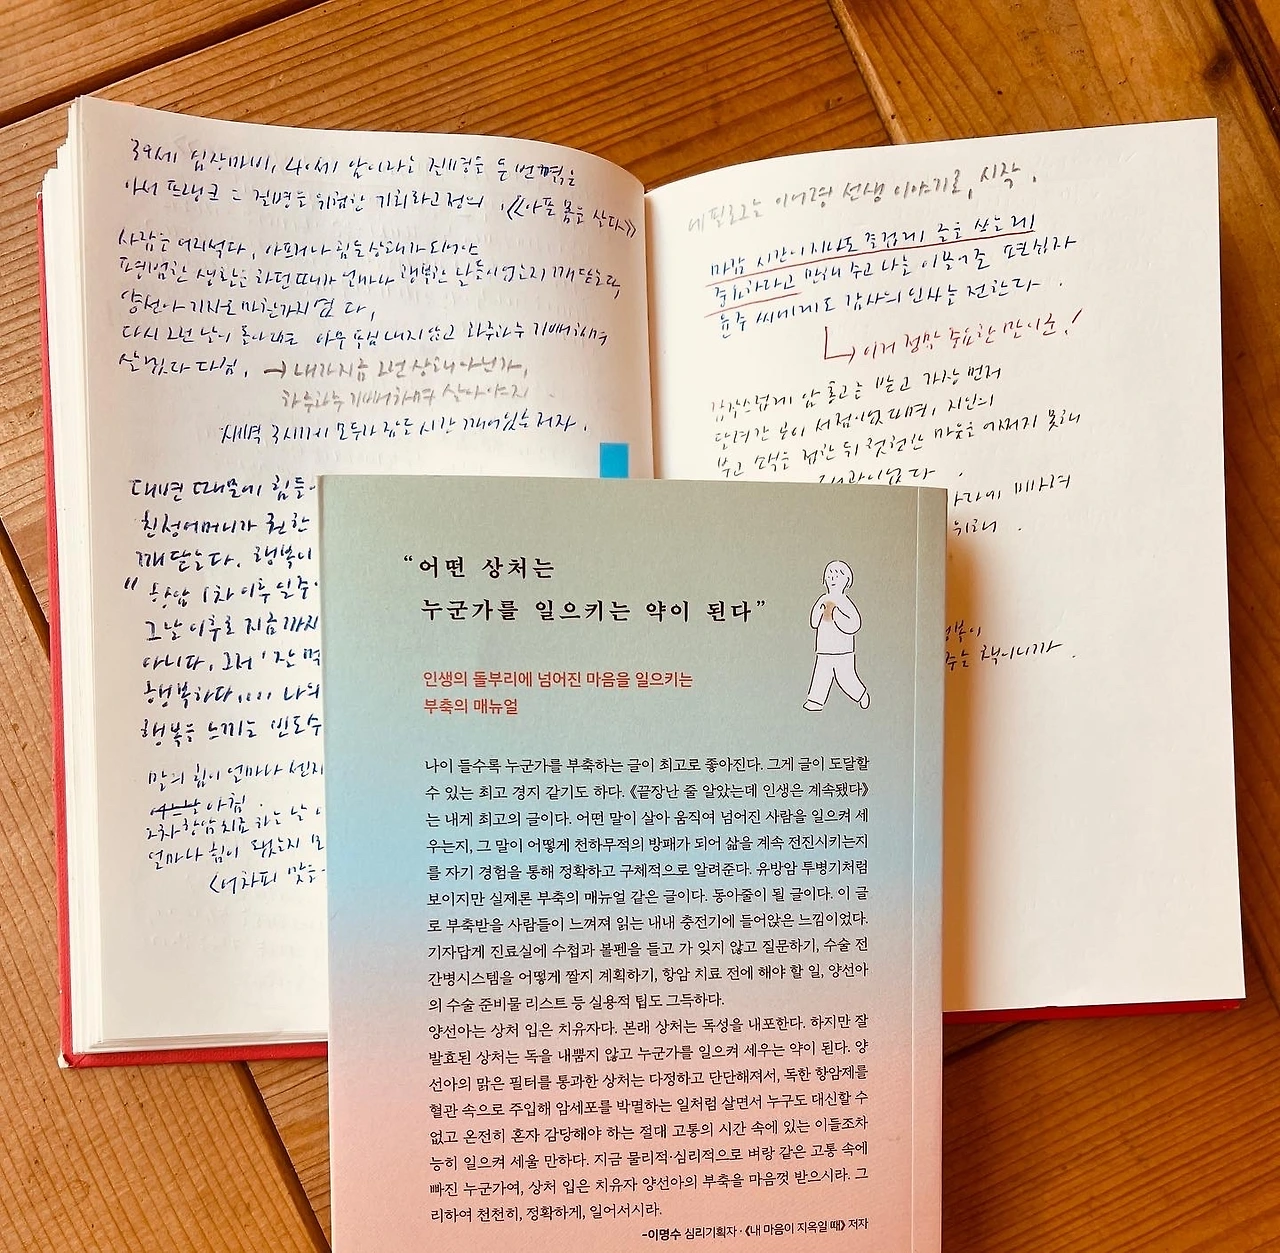 39세 심장마비, 40세 암이라는 질병을 두 번 겪은
아서 프랭크는 질병을 위험한 기회라고 정의. 《아픈 몸을 살다》
사람은 어리석다, 아프거나 힘든 상태가 되어야
평범한 생활을 하던 때가 얼마나 행복한 날들이었는지 깨닫는다,
양선아 기자도 마찬가지였다,
다시 그런 날이 돌아오면 아무 욕심 내지 않고 하루하루 기뻐하며
살겠다 다짐. → 내가 지금 그런 상태 아닌가,
하루하루 기뻐하며 살아야지
새벽 3시에 모두가 잠든 시간 깨어있는 저자.
대변 때문에 힘들
친정어머니가 권한
깨닫는다. 행복이
" 항암 1차 이후 일주
그날 이후로 지금까지
아니다, 그저 '잘 먹
행복하다.... 나의
행복을 느끼는 빈도수
말의 힘이 얼마나 센지
아침.
2차 항암치료 하는 날
얼마나 힘이 됐는지
<어차피 맞을
에필로그는 이어령 선생 이야기로, 시작.
마감 시간이 지나도 즐겁게 글을 쓰는 게
중요하다라고 말해 주고 나를 이끌어준 편집자
윤주 씨에게도 감사의 인사를 전한다.
↳ 이거 정말 중요한 말이군!
갑작스럽게 암 선고를 받고 가장 먼저
달려간 곳이 서점이었다며, 지인의
부고 소식을 접한 뒤 헛헛한 마음을 어쩌지 못해
위해.
행복이
주는 책이니까.
“어떤 상처는
누군가를 일으키는 약이 된다”
인생의 돌부리에 넘어진 마음을 일으키는
부축의 매뉴얼
나이 들수록 누군가를 부축하는 글이 최고로 좋아진다. 그게 글이 도달할
수 있는 최고 경지 같기도 하다. 《끝장난 줄 알았는데 인생은 계속됐다》
는 내게 최고의 글이다. 어떤 말이 살아 움직여 넘어진 사람을 일으켜 세
우는지, 그 말이 어떻게 천하무적의 방패가 되어 삶을 계속 전진시키는지
를 자기 경험을 통해 정확하고 구체적으로 알려준다. 유방암 투병기처럼
보이지만 실제론 부축의 매뉴얼 같은 글이다. 동아줄이 될 글이다. 이 글
로 부축받을 사람들이 느껴져 읽는 내내 충전기에 들어앉은 느낌이었다.
기자답게 진료실에 수첩과 볼펜을 들고 가 잊지 않고 질문하기, 수술 전
간병시스템을 어떻게 짤지 계획하기, 항암 치료 전에 해야 할 일, 양선아
의 수술 준비물 리스트 등 실용적 팁도 그득하다.
양선아는 상처 입은 치유자다. 본래 상처는 독성을 내포한다. 하지만 잘
발효된 상처는 독을 내뿜지 않고 누군가를 일으켜 세우는 약이 된다. 양
선아의 맑은 필터를 통과한 상처는 다정하고 단단해져서, 독한 항암제를
혈관 속으로 주입해 암세포를 박멸하는 일처럼 살면서 누구도 대신할 수
없고 온전히 혼자 감당해야 하는 절대 고통의 시간 속에 있는 이들조차
능히 일으켜 세울 만하다. 지금 물리적·심리적으로 벼랑 같은 고통 속에
빠진 누군가여, 상처 입은 치유자 양선아의 부축을 마음껏 받으시라. 그
리하여 천천히, 정확하게, 일어서시라.
-이명수 심리기획자·《내 마음이 지옥일 때》 저자